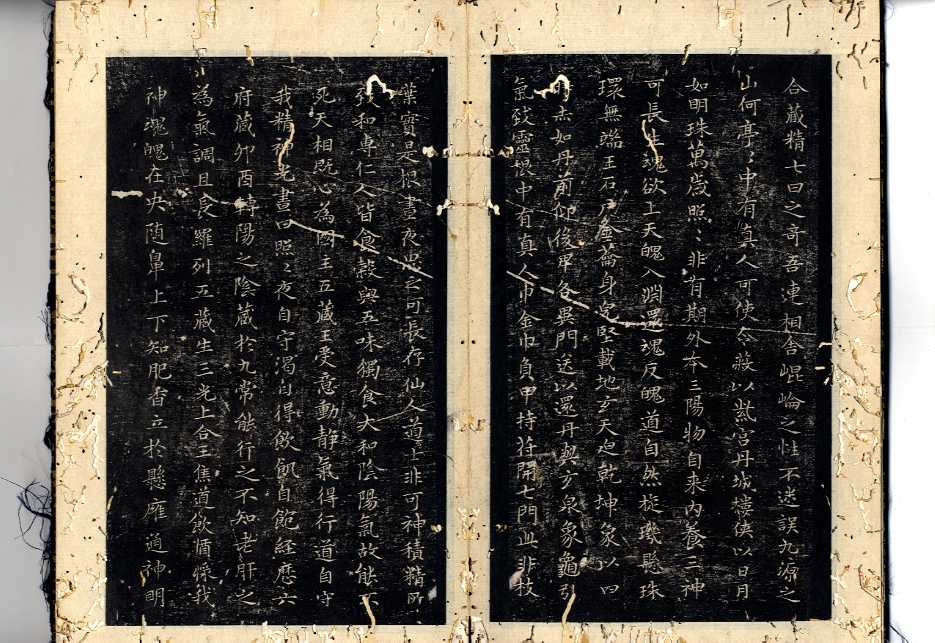 合藏精七日之奇吾連相舍崐崘之性不迷誤九源之
山何亭〻中有真人可使令蔽以紫宮丹城樓俠以日月
如明珠萬歲照〻非有期外本三陽物自来內養三神
可長生魂欲上天魄入淵還魂反魄道自然旋璣懸珠
環無端玉石戶金籥身完堅載地玄天迫乾坤象以四
時赤如丹前仰後卑各異門送以還丹與玄泉象龜引
氣致靈根中有真人巾金巾負甲持符開七門此非枝
葉實是根晝夜思之可長存仙人道士非可神積精所
致和專仁人皆食穀與五味獨食大和陰陽氣故能不
死天相既心為國主五藏王受意動靜氣得行道自守
我精神光晝日照〻夜自守渴自得飲飢自飽経歷六
府藏卯酉轉陽之陰藏於九常能行之不知老肝之
為氣調且長羅列五藏生三光上合三焦道飲漿我
神魂魄在央随鼻上下知肥香立於懸膺通神明